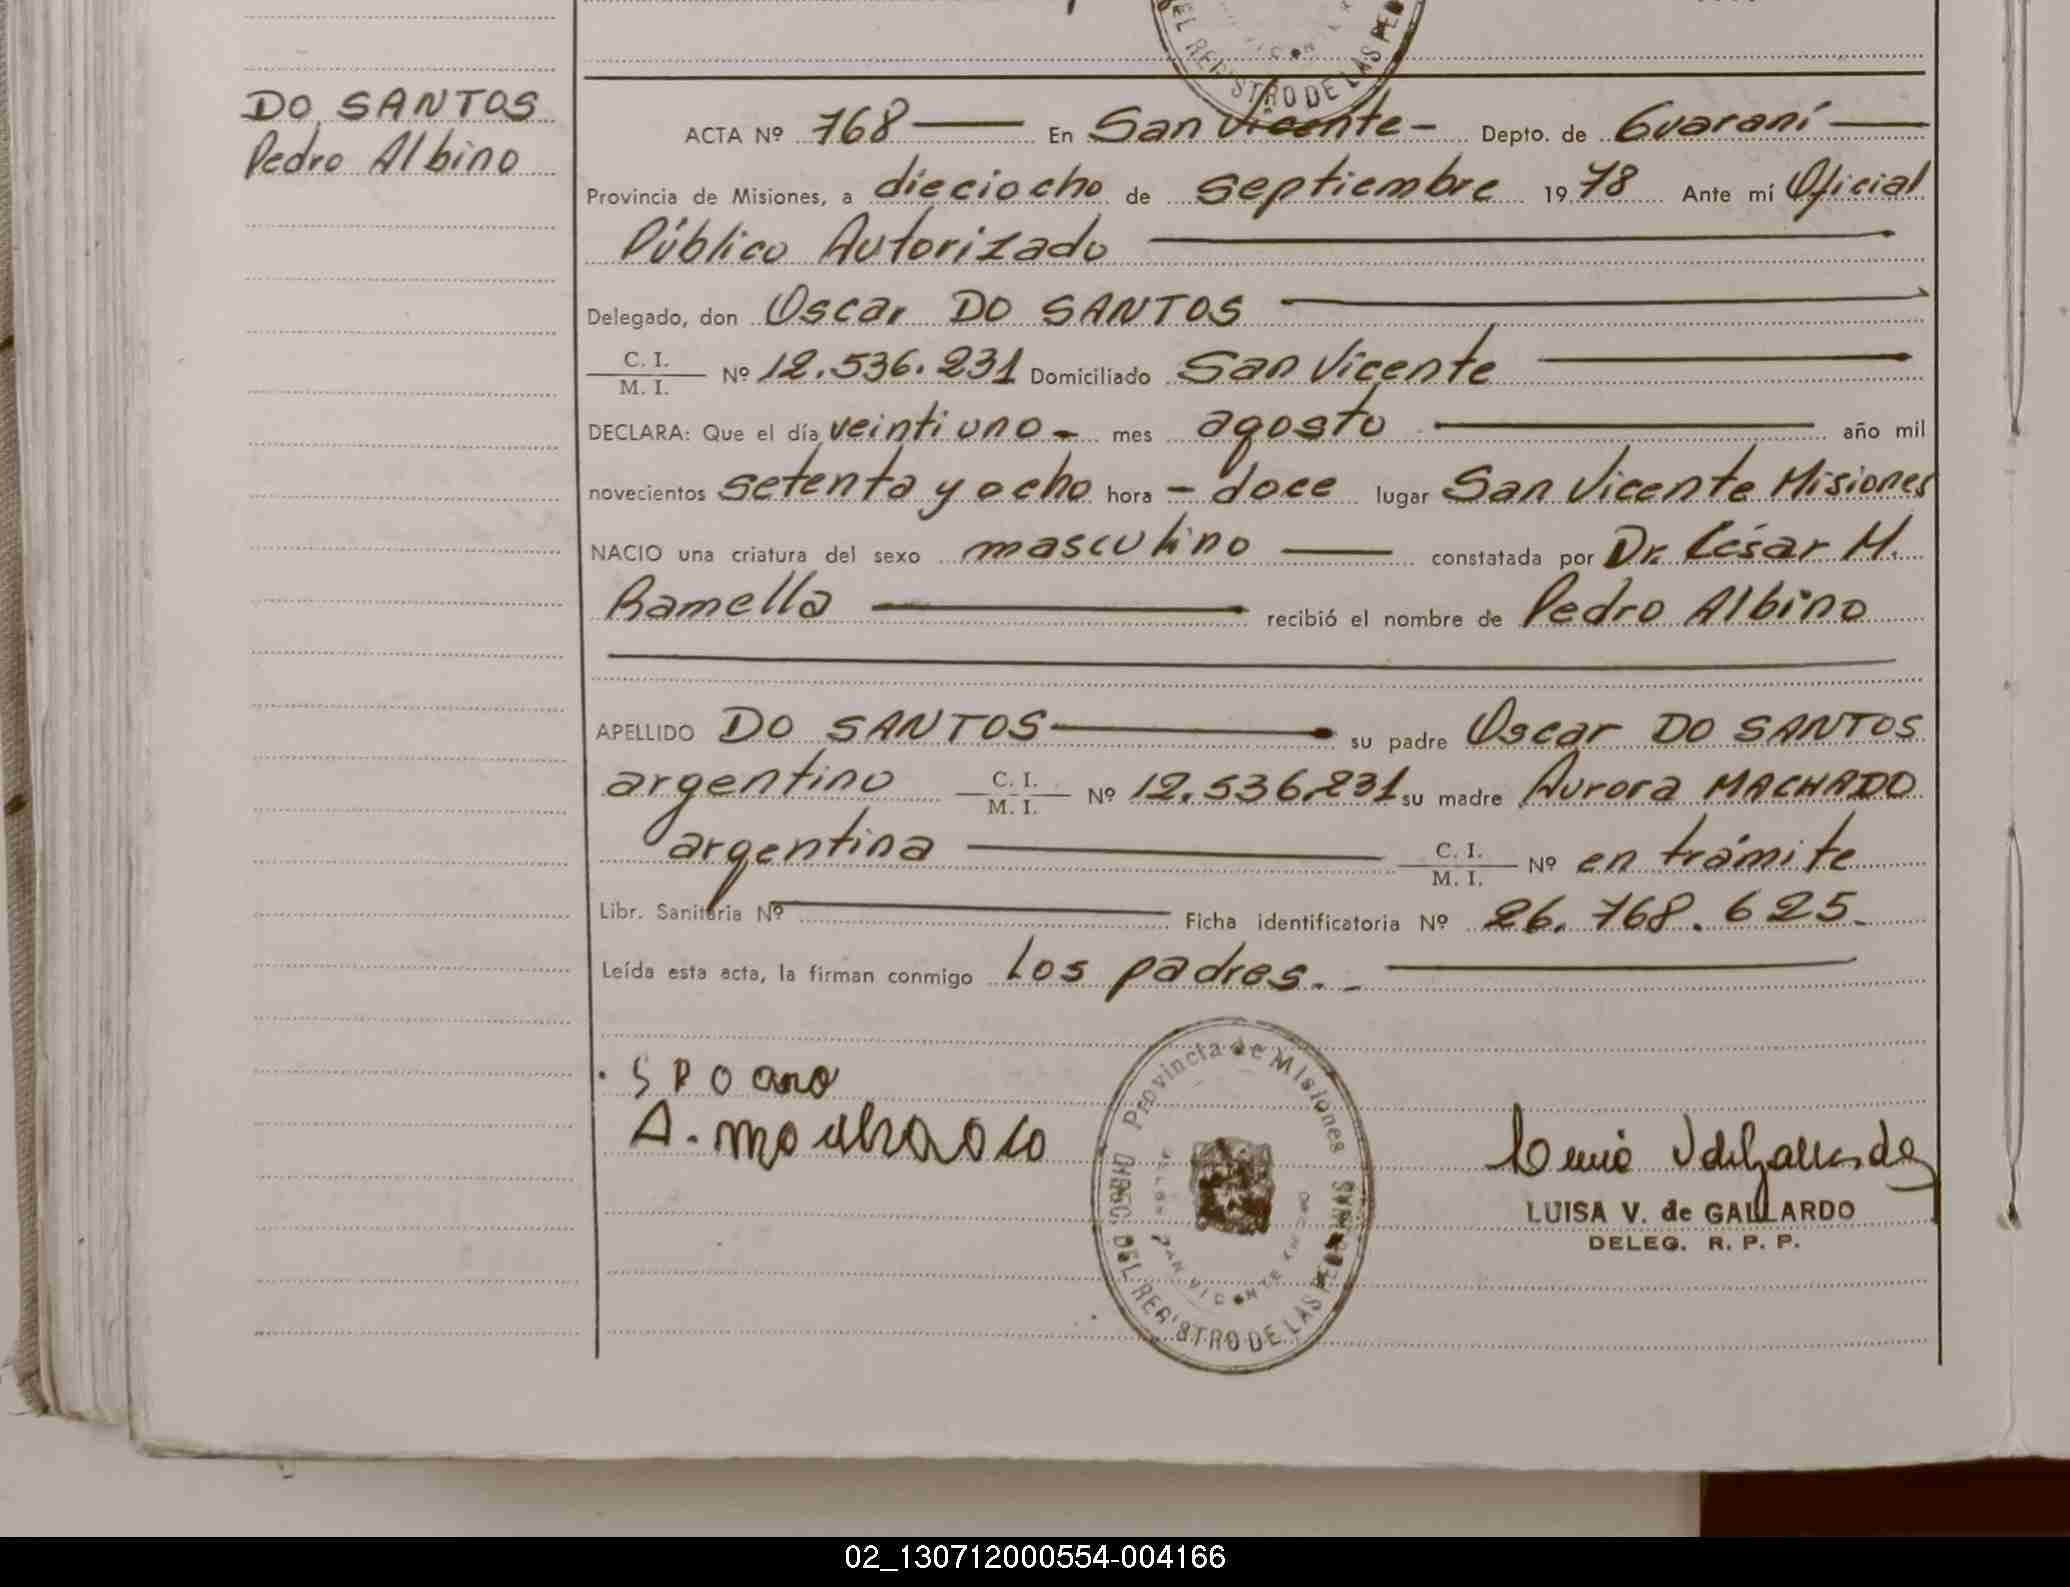 DO SANTOS
Pedro Albino
DEL REGISTRO DE LAS PER
ACTA Nº 768 — En San Vicente - Depto. de Guaraní —
Provincia de Misiones, a dieciocho de septiembre 1978 Ante mí Oficial
Público Autorizado —
Delegado, don Oscar DO SANTOS —
C. I.
M. I. Nº 12.536.231 Domiciliado San Vicente —
DECLARA: Que el día veintiuno - mes agosto — año mil
novecientos setenta y ocho hora - doce lugar San Vicente Misiones
NACIO una criatura del sexo masculino — constatada por Dr. César M.
Ramella — recibió el nombre de Pedro Albino
APELLIDO DO SANTOS — su padre Oscar DO SANTOS
argentino C. I. M. I. Nº 12.536.231 su madre Aurora MACHADO
argentina — C. I. M. I. Nº en trámite
Libr. Sanitaria Nº — Ficha identificatoria Nº 26.768.625.
Leída esta acta, la firman conmigo los padres. - —
Provincia de Misiones
DIREC. DEL REGISTRO DE LAS PERSONAS
SAN VICENTE
A.
LUISA V. de GALLARDO
DELEG. R. P. P.
02_130712000554-004166